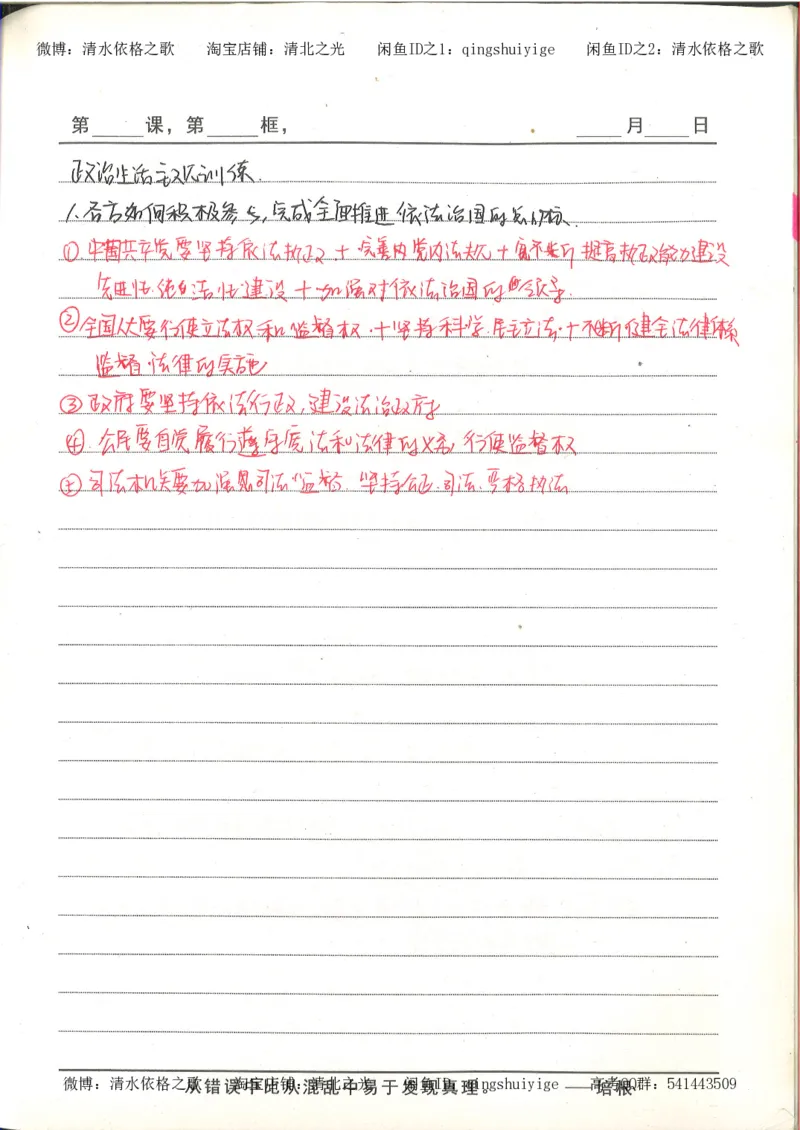 微博：清水依格之歌 淘宝店铺：清北之光 闲鱼ID之1：qingshuiyige 闲鱼ID之2：清水依格之歌
第____课，第____框， ____月____日
政治生活主观训练.
1.各方如何积极参与,完成全面推进依法治国的总目标.
①中国共产党要坚持依法执政＋完善党内法规＋不断提高执政能力建设
先进性.纯洁性建设＋加强对依法治国的领导.
②全国人大要行使立法权和监督权.＋坚持科学.民主立法.＋不断健全法律体系
监督.法律的实施
③政府要坚持依法行政,建设法治政府
④.公民要自觉履行遵守宪法和法律的义务,行使监督权
⑤司法机关要加强司法监督.坚持公正.司法.严格执法
从错误中比从混乱中易于发现真理。 ——培根
微博：清水依格之歌 淘宝店铺：清北之光 闲鱼ID：qingshuiyige 高考QQ群：541443509